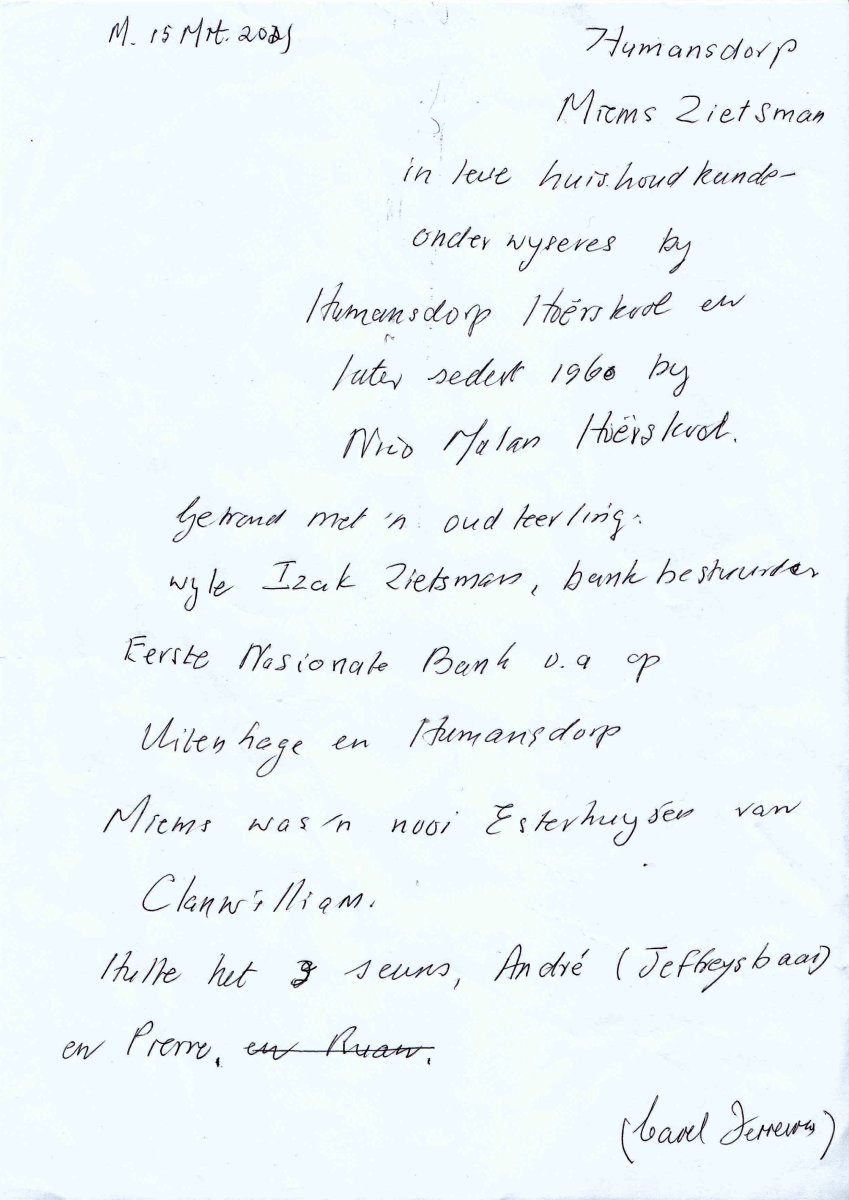 M. 15 Mrt.
Humansdorp
Miems Zietsman
in lewe huishoudkunde-
onderwyseres by
Humansdorp Hoërskool en
later sedert 1960 by
Nico Malan Hoërskool.
Getroud met 'n oud leerling.
wyle Izak Zietsman, bankbestuurder
Eerste Nasionale Bank o.a op
Uitenhage en Humansdorp
Miems was 'n nooi Esterhuysen van
Clanwilliam.
Hulle het 3 seuns, André (Jeffreysbaai)
en Pierre. en Ruan.
(Carel